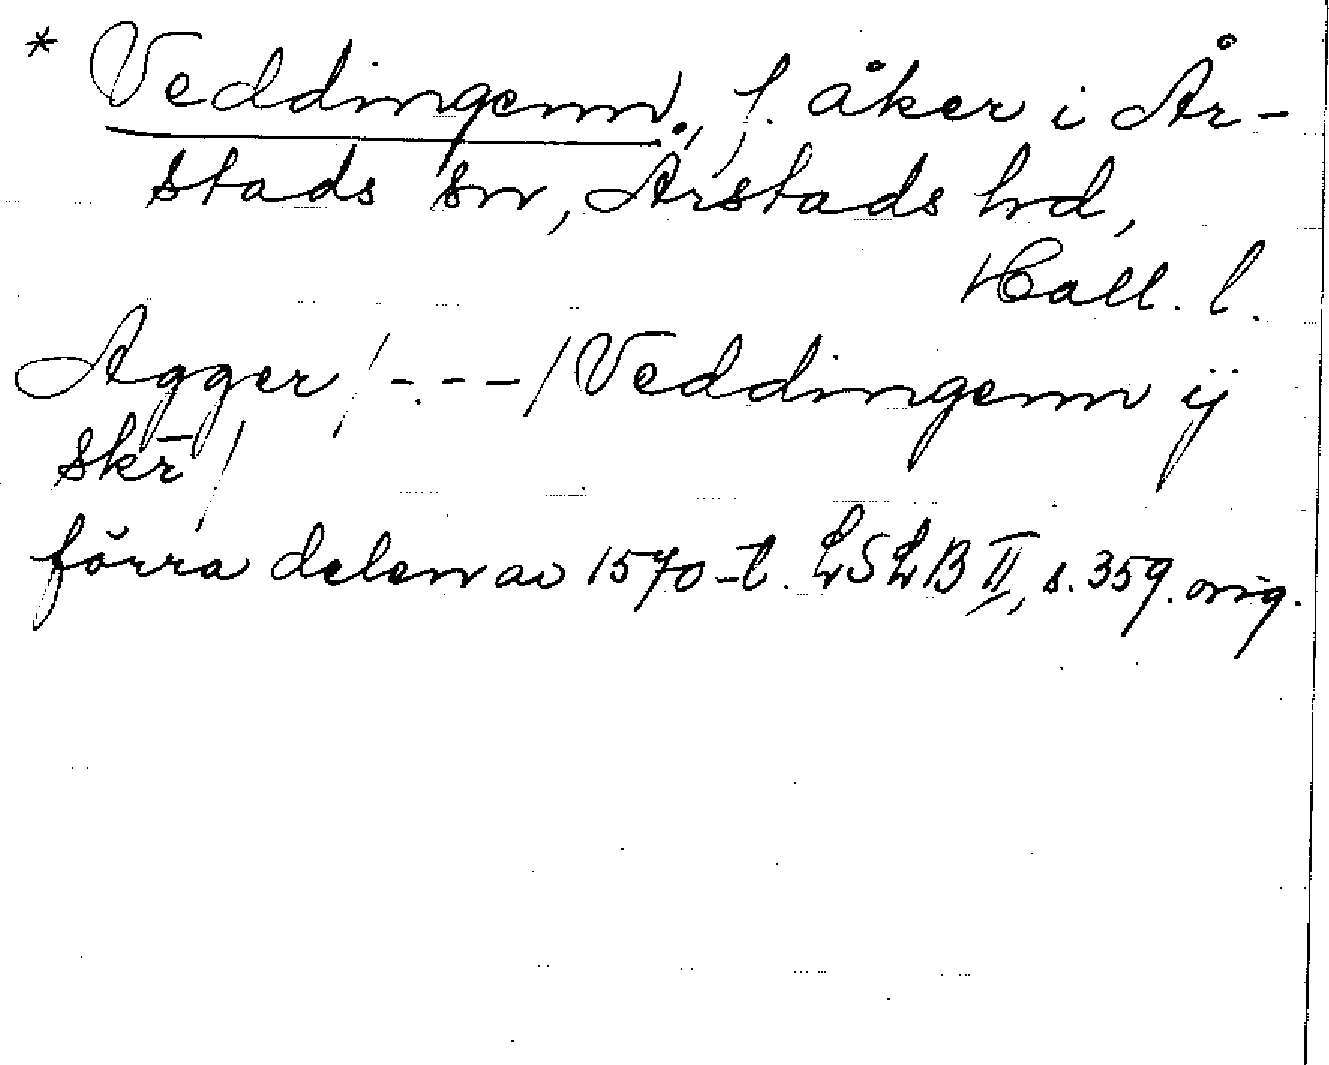 * Veddingenn, f. åker i År-
stads sn, Årstads hd,
Hall. l.
Agger /---/ Veddingenn ij
skr̄ /
förra delen av 1570-t. LSLB II, s. 359. orig.